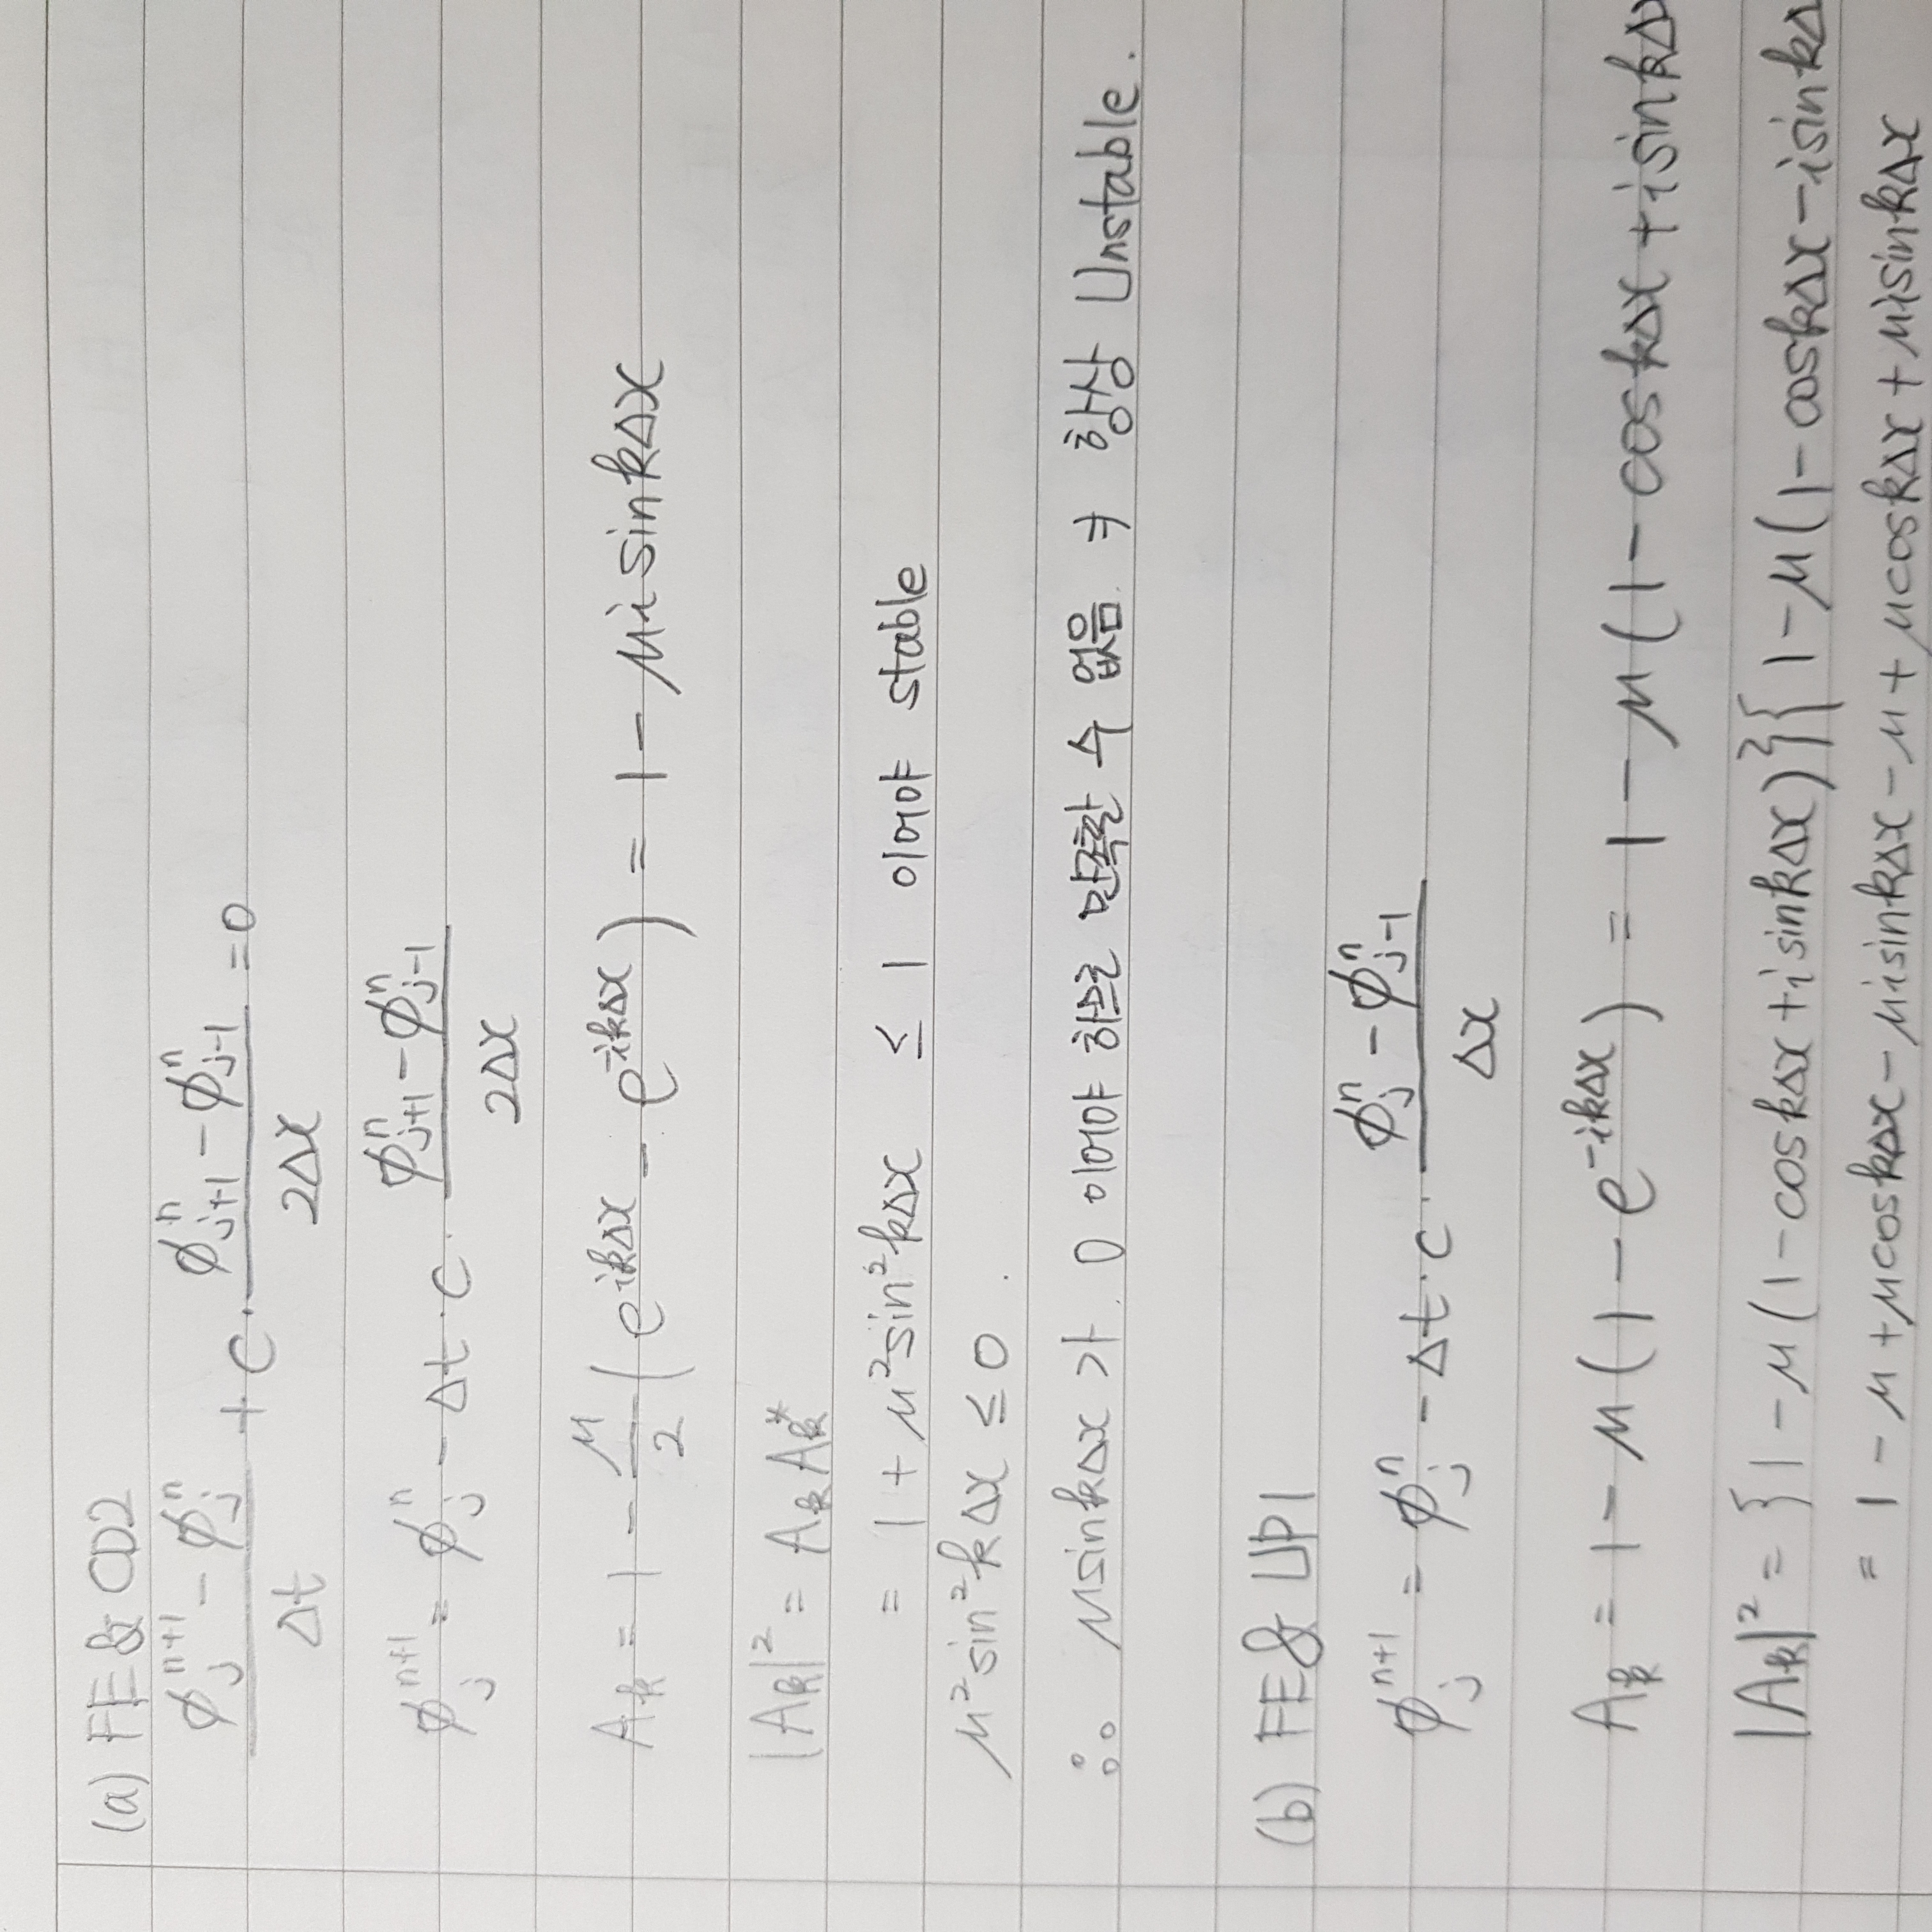 (a) FE & CD2
(ϕ_j^{n+1} - ϕ_j^n)/Δt + c · (ϕ_{j+1}^n - ϕ_{j-1}^n)/2Δx = 0
ϕ_j^{n+1} = ϕ_j^n - Δt · c · (ϕ_{j+1}^n - ϕ_{j-1}^n)/2Δx
A_k = 1 - μ/2 (e^{ikΔx} - e^{-ikΔx}) = 1 - μi sinkΔx
|A_k|² = A_k A_k^*
= 1 + μ²sin²kΔx ≤ 1 이어야 stable
μ²sin²kΔx ≤ 0.
∴ μsinkΔx가 0 이어야 하므로 만족할 수 없음. ⇒ 항상 Unstable.
(b) FE & UP1
ϕ_j^{n+1} = ϕ_j^n - Δt · c · (ϕ_j^n - ϕ_{j-1}^n)/Δx
A_k = 1 - μ(1 - e^{-ikΔx}) = 1 - μ(1 - coskΔx + i sinkΔx
|A_k|² = {1 - μ(1 - coskΔx + i sinkΔx)}{1 - μ(1 - coskΔx - i sinkΔ
= 1 - μ + μcoskΔx - μi sinkΔx - μ + μcoskΔx + μi sinkΔx